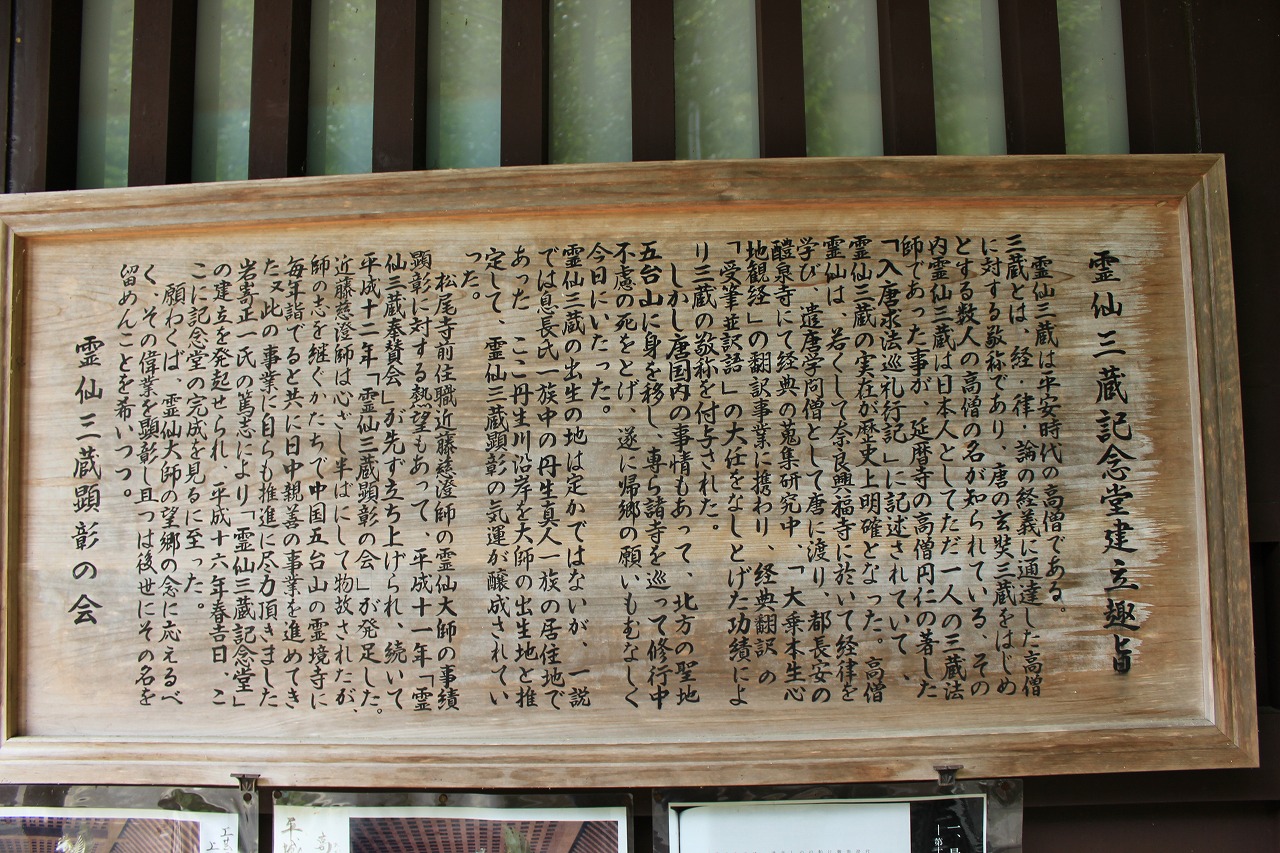 霊仙三蔵記念堂建立趣旨
霊仙三蔵は平安時代の高僧である。
三蔵とは、経・律・論の経義に通達した高僧
に対する敬称であり、唐の玄奘三蔵をはじめ
とする数人の高僧の名が知られている、その
内霊仙三蔵は日本人としてただ一人の三蔵法
師であった事が、延暦寺の高僧円仁の著した
「入唐求法巡礼行記」に記述されていて、
霊仙三蔵の実在が歴史上明確となった。高僧
霊仙は、若くして奈良興福寺に於いて経律を
学び、遣唐学問僧として唐に渡り、都長安の
醴泉寺にて経典の蒐集研究中、「大乗本生心
地観経」の翻訳事業に携わり、経典翻訳の
「受筆並訳語」の大任をなしとげた功績によ
り三蔵の敬称を付与された。
しかし唐国内の事情もあって、北方の聖地
五台山に身を移し、専ら諸寺を巡って修行中
不慮の死をとげ、遂に帰郷の願いもむなしく
今日にいたった。
霊仙三蔵の出生の地は定かではないが、一説
では息長氏一族中の丹生真人一族の居住地で
あった ここ丹生川沿岸を大師の出生地と推
定して、霊仙三蔵顕彰の気運が醸成されてい
った。
松尾寺前住職近藤慈澄師の霊仙大師の事績
顕彰に対する熱望もあって、平成十一年「霊
仙三蔵奉賛会」が先ず立ち上げられ、続いて
平成十二年「霊仙三蔵顕彰の会」が発足した。
近藤慈澄師は心ざし半ばにして物故されたが、
師の志を継ぐかたちで中国五台山の霊境寺に
毎年詣でると共に日中親善の事業を進めてき
た又此の事業に自らも推進に尽力頂きました
岩嵜正一氏の篤志により「霊仙三蔵記念堂」
の建立を発起せられ、平成十六年春吉日、こ
こに記念堂の完成を見るに至った。
願わくば、霊仙大師の望郷の念に応えるべ
く、その偉業を顕彰し且つは後世にその名を
留めんことを希いつつ。
霊仙三蔵顕彰の会